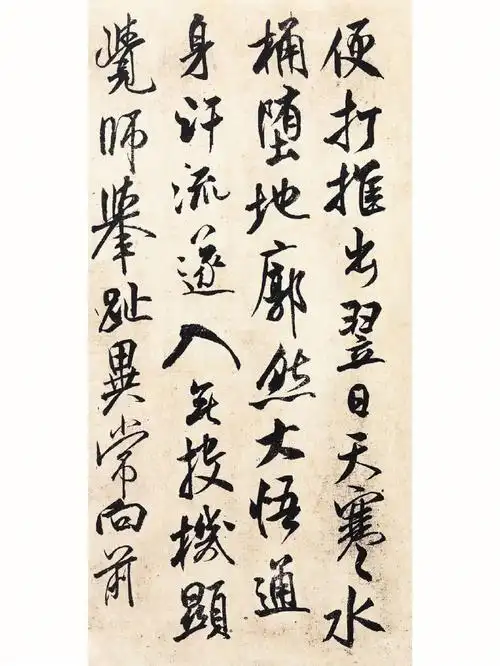 便打推出翌日天寒水
桶墮地廓然大悟通
身汗流遂入室投機顯
覺師舉趾異常向前